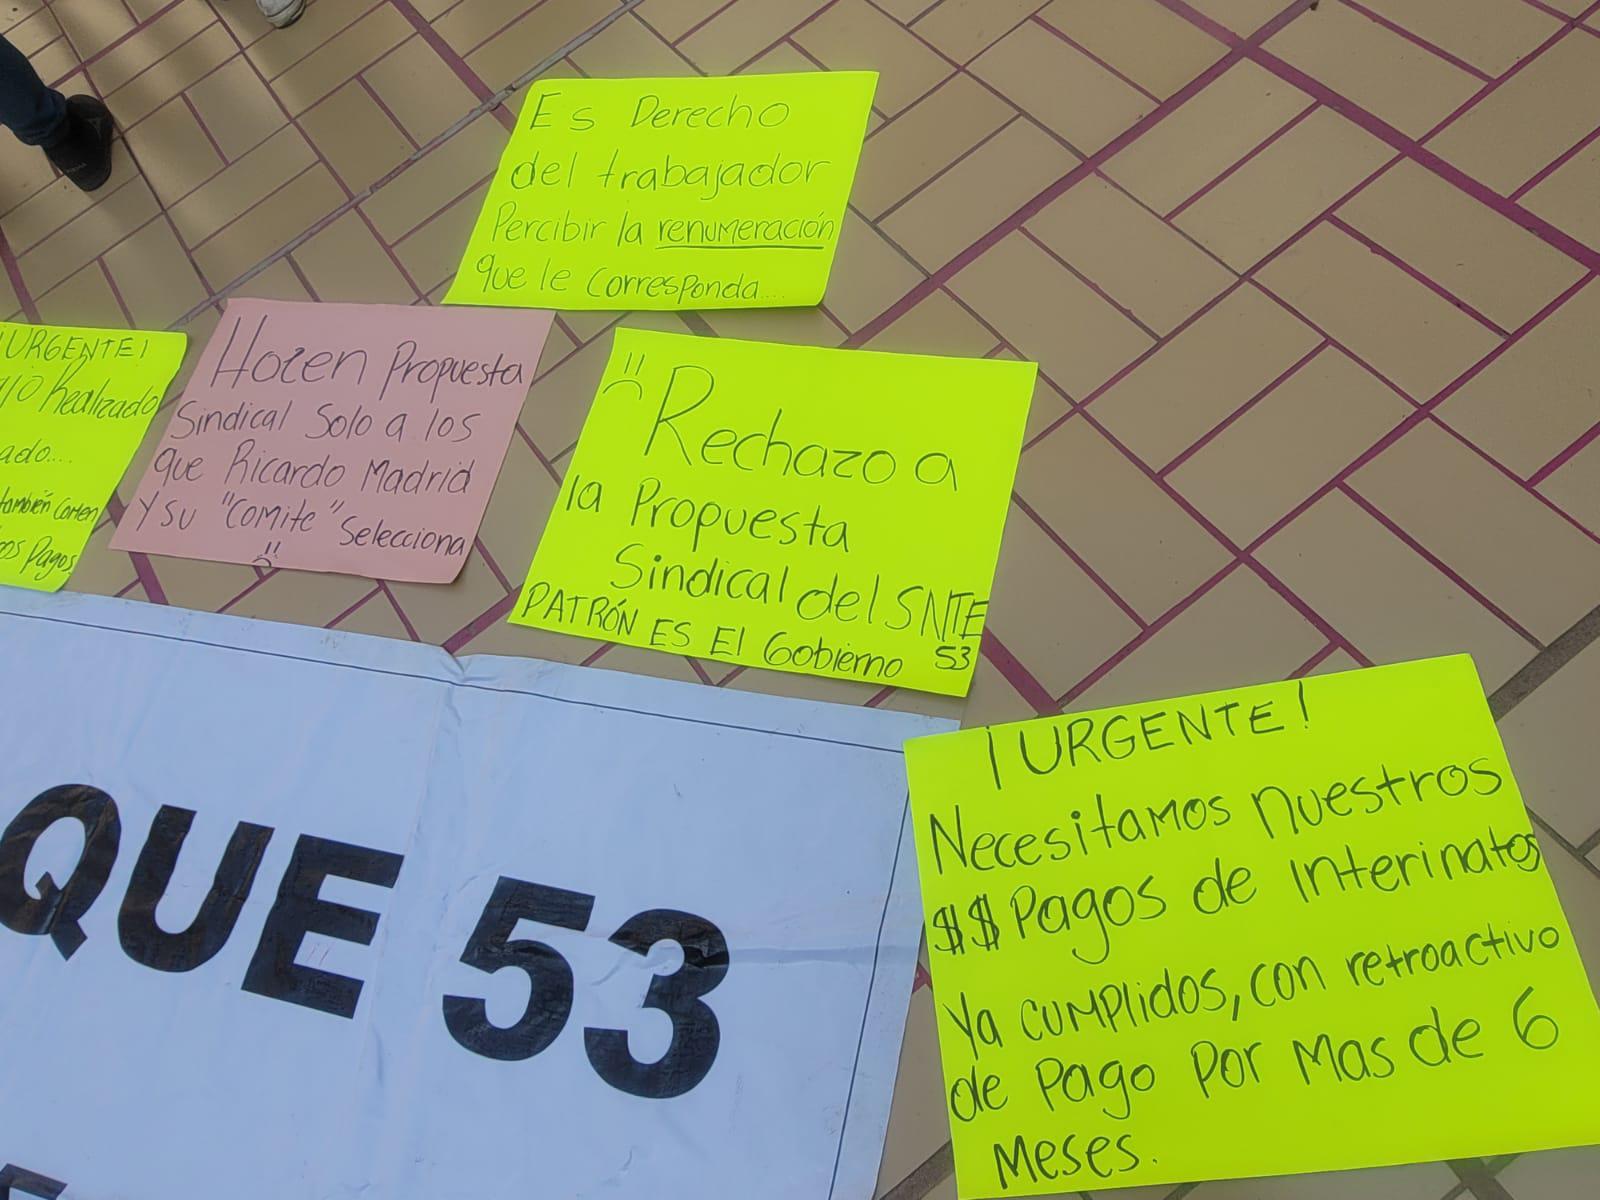 Es Derecho
del trabajador
Percibir la renumeración
que le corresponda....
¡URGENTE!
Realizado
ado....
también comen
Pagos
Hacen Propuesta
Sindical Solo a los
que Ricardo Madrid
Y su "Comite" Selecciona
Rechazo a
la Propuesta
Sindical del SNTE
53
PATRÓN ES El Gobierno
¡URGENTE!
Necesitamos nuestros
$$ Pagos de Interinatos
Ya cumplidos, con retroactivo
de Pago Por Mas de 6
Meses.
QUE 53